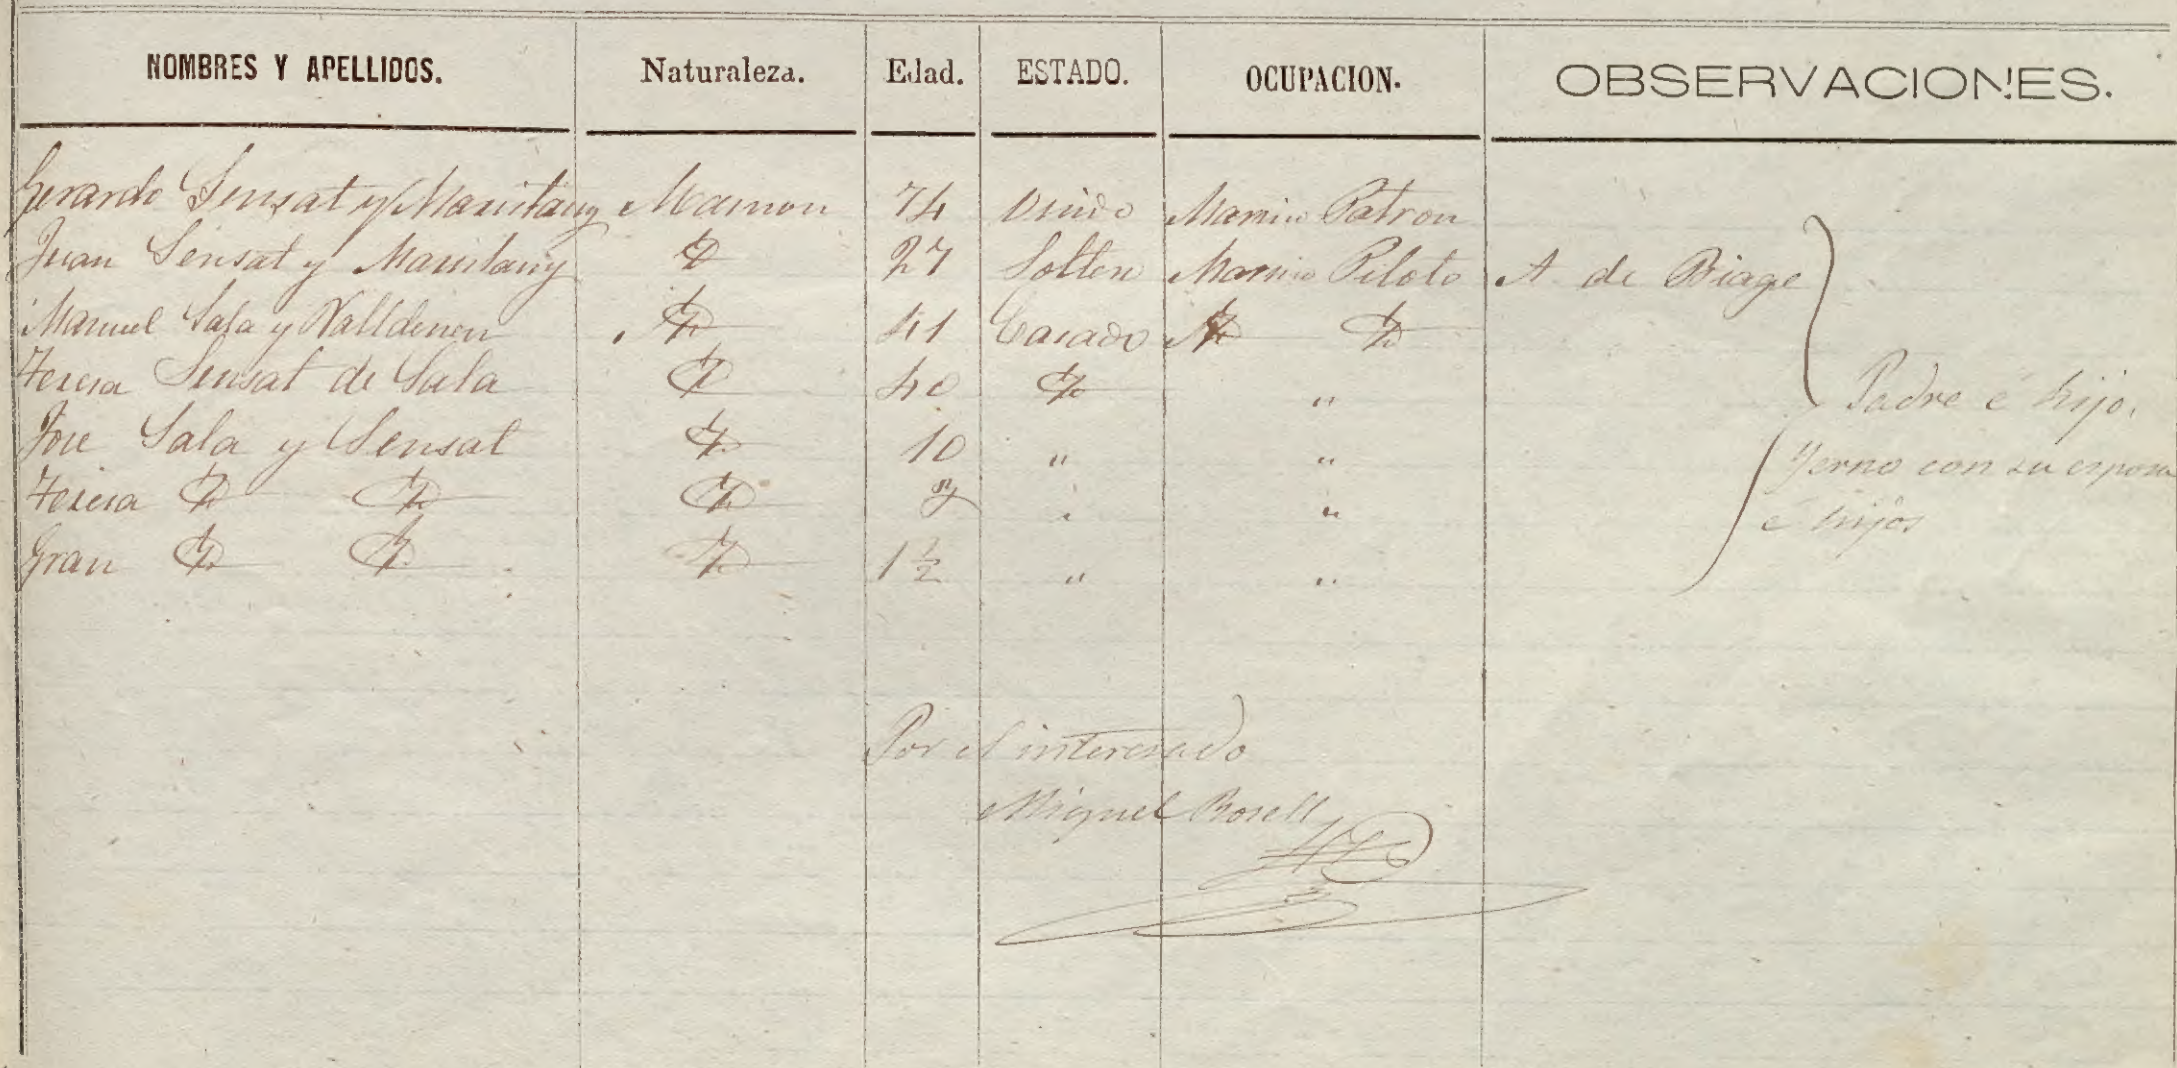 NOMBRES Y APELLIDOS. Naturaleza. Edad. ESTADO. OCUPACION. OBSERVACIONES.
Gerardo Sensat y Maristany Masnou 74 Viudo Marino Patron
Juan Sensat y Maristany Id 27 Solten Marino Piloto A. de Biage
Manuel Sala y 41 Casado Id Id
Teresa Sensat de Sala Id 40 Id "
Padre é hijo.
Jose Sala y Sensat Id 10 " "
Yerno con su esposa
Teresa Id Id Id " "
é hijos
Grau Id Id Id 1 ½ " "
Por el interesado
Miguel Rosell